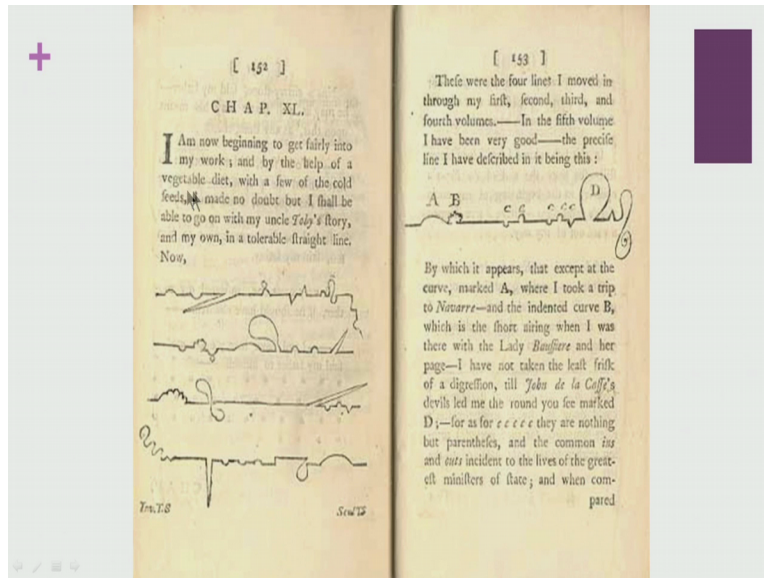 +
[ 152 ]
CHAP. XL.
I Am now beginning to get fairly into
my work ; and by the help of a
vegetable diet, with a few of the cold
ſeeds, made no doubt but I ſhall be
able to go on with my uncle Toby's ſtory,
and my own, in a tolerable ſtraight line.
Now,
Inv.T.S
Scul.TS
[ 153 ]
Theſe were the four lines I moved in
through my firſt, ſecond, third, and
fourth volumes.——In the fifth volume
I have been very good——the preciſe
line I have deſcribed in it being this :
A B c c c c c D
By which it appears, that except at the
curve, marked A, where I took a trip
to Navarre—and the indented curve B,
which is the ſhort airing when I was
there with the Lady Bauſſiere and her
page—I have not taken the leaſt friſk
of a digreſſion, till John de la Caſſe's
devils led me the round you ſee marked
D ;—for as for c c c c c they are nothing
but parentheſes, and the common ins
and outs incident to the lives of the great-
eſt miniſters of ſtate ; and when com-
pared